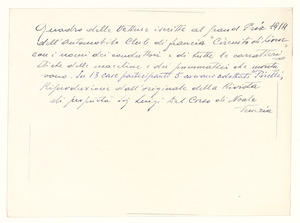 Quadro delle Vetture iscritte al grand Prix 1914
dell'Automobile Club di francia "Circuito di Lione"
con i nomi dei conduttori e di tutte le caratteri
stiche delle macchine e dei pneumatici che monta
vano. Su 13 case partecipanti 5 avevano adottati "Pirelli"
Riproduzione dall'originale della Rivista
di proprietà sig Luigi Dal Corso di Noale
Venezia